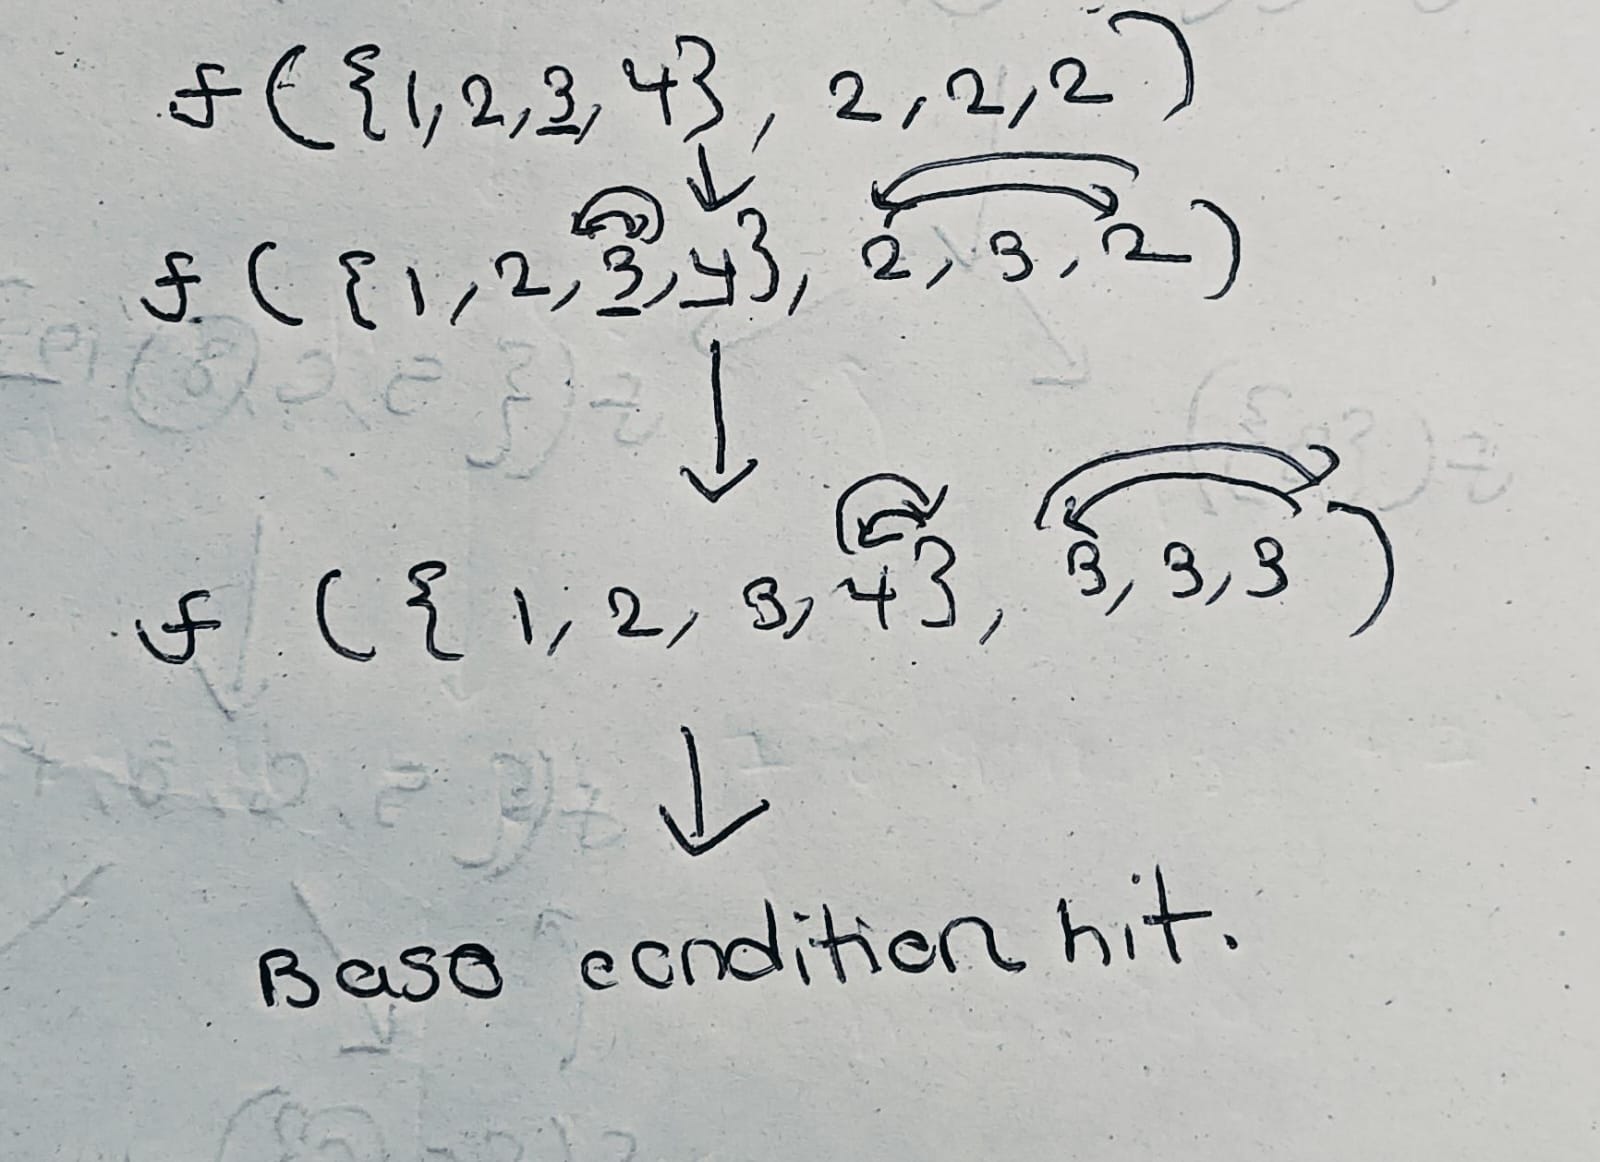 f({1,2,3,4}, 2,2,2)
f({1,2,3,4}, 2,3,2)
f({1,2,3,4}, 3,3,3)
Base condition hit.